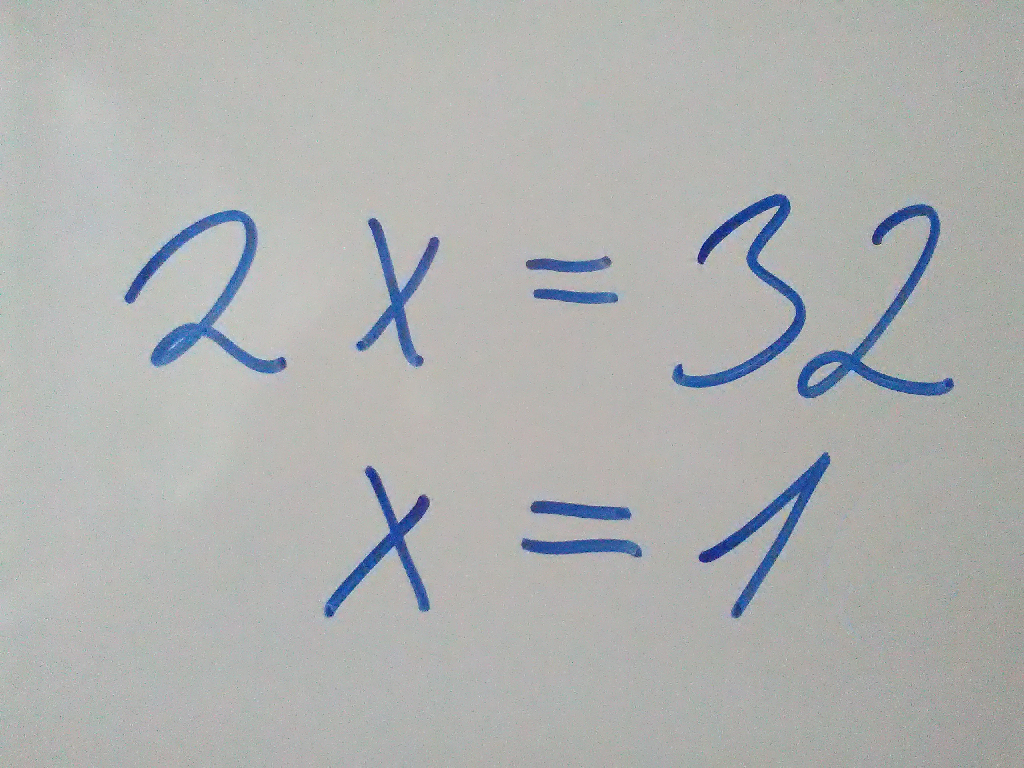 2x = 32
x = 1